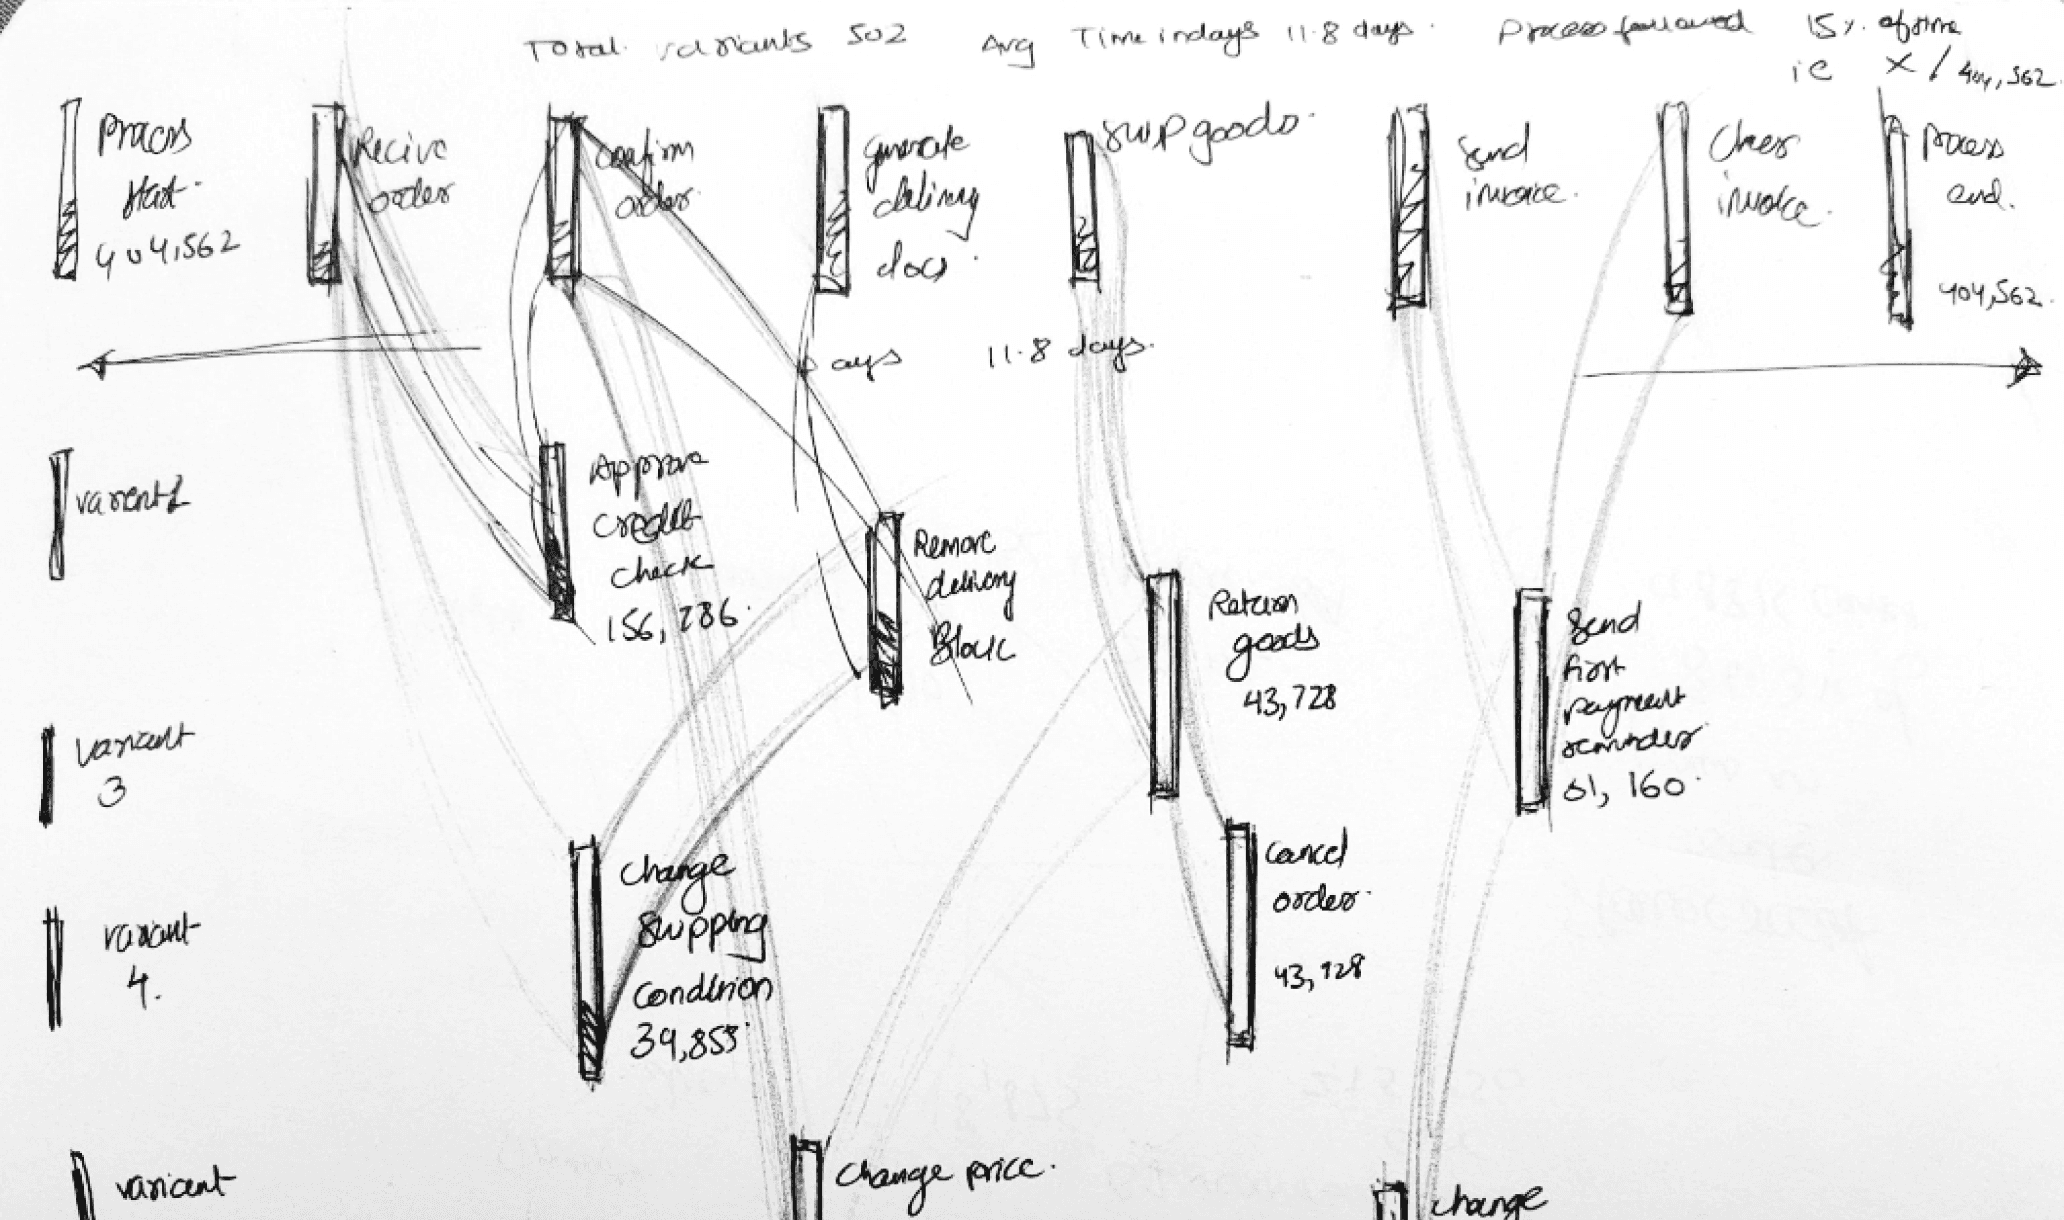 Total variants 502 Avg Time in days 11.8 days. Process followed 15% of time
ie X / 404,562.
Process
start.
404,562
Recive
order
Confirm
order.
generate
delivery
docs.
Ship goods.
Send
invoice.
Clear
invoice.
Process
end.
404,562.
days 11.8 days.
varient 1
Approve
credit
check
156,286.
Remove
delivery
Block
Return
goods
43,728
Send
first
payment
reminder
51, 160.
variant
3
Change
Shipping
Condition
39,855.
Cancel
order.
43,928
variant
4.
variant
Change price.
Change